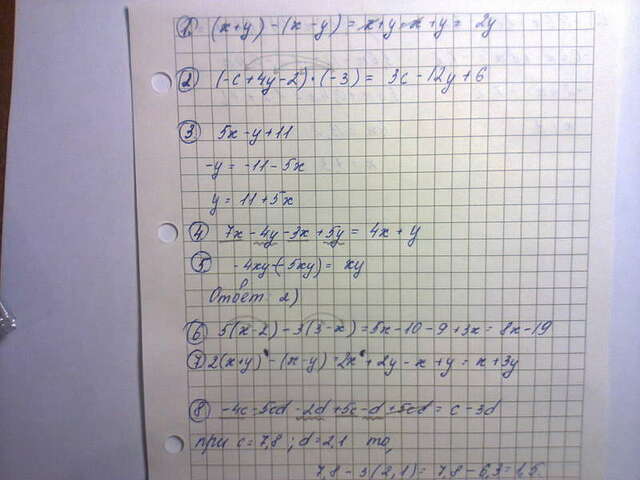 1. (x+y) - (x-y) = x+y-x+y = 2y
2 (-c+4y-2)·(-3) = 3c-12y+6
3. 5x-y+11
-y = -11-5x
y = 11+5x
4. 7x-4y-3x+5y = 4x+y
5. -4xy-(-5xy) = xy
Ответ: 2)
6 5(x-2)-3(3-x) = 5x-10-9+3x = 8x-19
7. 2(x+y)-(x-y) = 2x+2y-x+y = x+3y
8 -4c-5cd-2d+5c-d+5cd = c-3d
при c=7,8; d=2,1 то,
7,8-3(2,1) = 7,8-6,3 = 1,5.